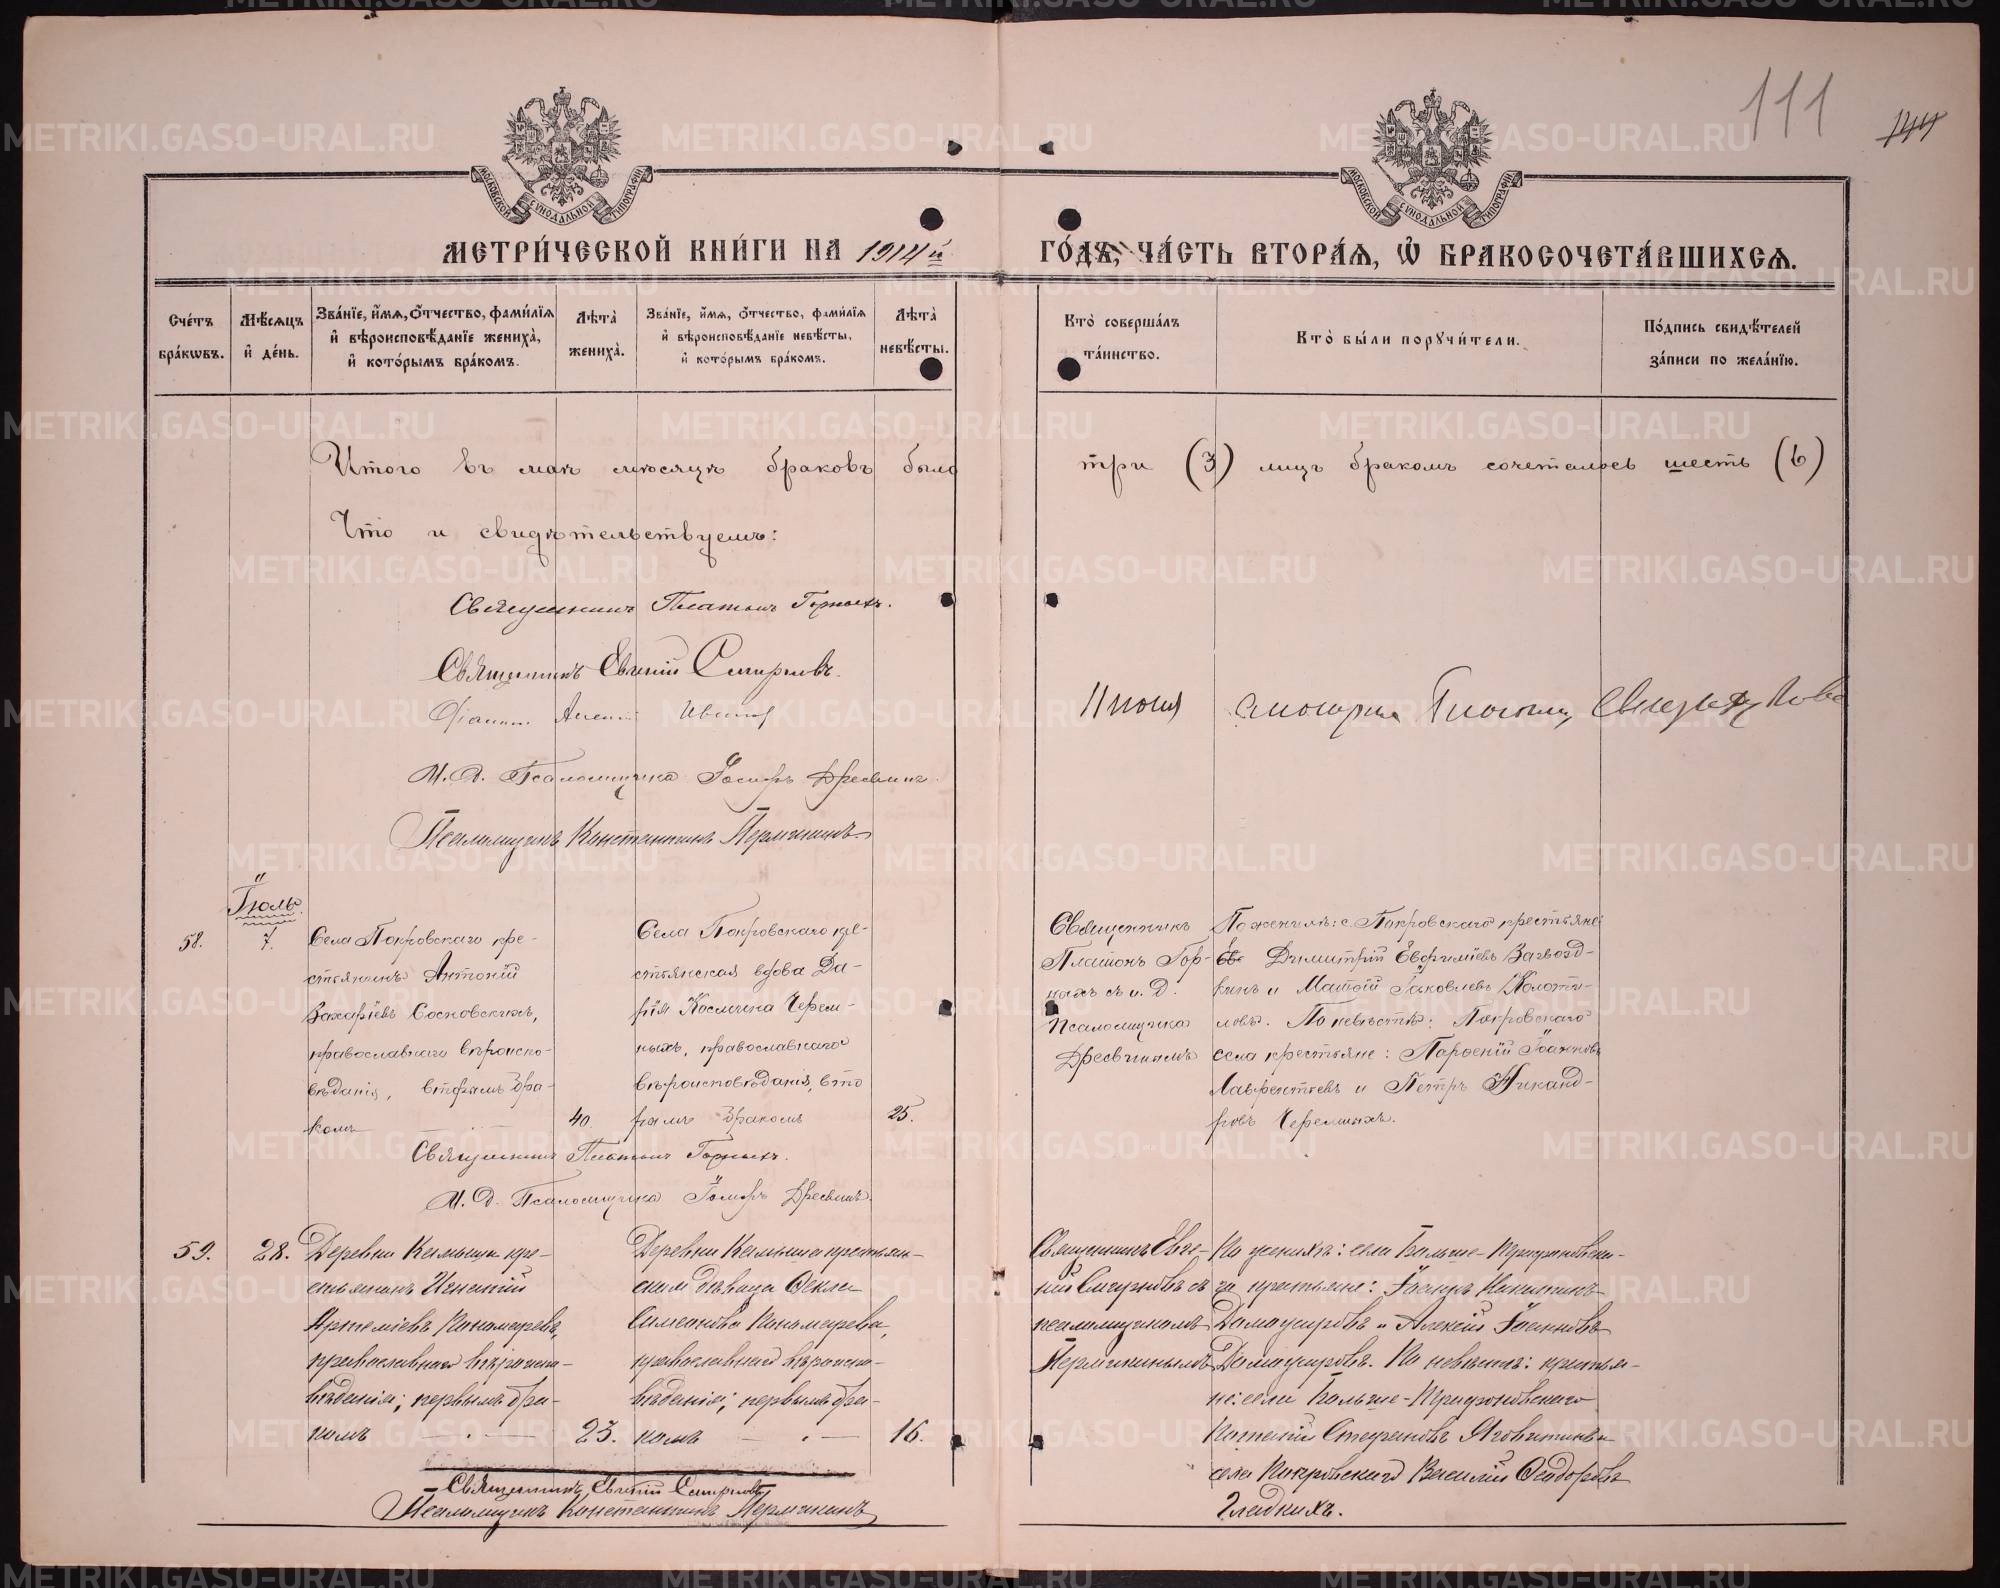 111
144
МОСКОВСКОЙ СѴНОДАЛЬНОЙ ТИПОГРАФІИ
МОСКОВСКОЙ СѴНОДАЛЬНОЙ ТИПОГРАФІИ
МЕТРИ́ЧЕСКОЙ КНИ́ГИ НА 1914й ГО́ДЪ, ЧА́СТЬ ВТОРА́Я, Ѽ БРАКОСОЧЕТА́ВШИХСЯ.
Сче́тъ бра́кѡвъ.
Мѣ́сяцъ и҆ де́нь.
Зва́нїе, и҆́мя, ѻ҆́тчество, фами́лїя и҆ вѣроисповѣ́данїе жениха̀, и҆ кото́рымъ бра́комъ.
Лѣ́та̀ жениха̀.
Зва́нїе, и҆́мя, ѻ҆́тчество, фами́лїя и҆ вѣроисповѣ́данїе невѣ́сты, и҆ кото́рымъ бра́комъ.
Лѣ́та̀ невѣ́сты.
Кто̀ соверша́лъ та́инство.
Кто̀ бы́ли порꙋчи́тели.
По́дпись свидѣ́телей за́писи по жела́нїю.
Итого въ маѣ мѣсяцѣ браковъ было три (3) лицъ бракомъ сочеталось шесть (6)
Что и свидѣтельствуемъ:
Священникъ Платонъ Горныхъ.
Священникъ Евгеній Смирновъ.
И. Д. Псаломщика Іосифъ Дресвинъ.
Псаломщикъ Константинъ Пермикинъ.
Іюня
Іюль.
58.
7.
Села Покровскаго кре-
стьянинъ Антоній
Захаріевъ Сосновскихъ,
православнаго вѣроиспо-
вѣданія, вторымъ бра-
комъ
40.
Села Покровскаго кре-
стьянская вдова Да-
рія Космина Черем-
ныхъ, православнаго
вѣроисповѣданія, вто
рымъ бракомъ
25.
Священникъ
Платонъ Гор-
ныхъ съ и. д.
Псаломщика
Дресвинымъ
По женихѣ: с. Покровскаго крестьяне
Димитрій Евфиміевъ Загвозд-
кинъ и Матѳій Іаковлевъ Колоти-
ловъ. По невѣстѣ: Покровскаго
села крестьяне: Парѳеній Іоанновъ
Лаврентьевъ и Петръ Никанд-
ровъ Черемныхъ.
Священникъ Платонъ Горныхъ.
И. Д. Псаломщика Іосифъ Дресвинъ.
59.
28.
Деревни Камышки кре-
стьянинъ Игнатій
Артеміевъ Пономаревъ,
православнаго вѣроиспо-
вѣданія; первымъ бра-
комъ
23.
Деревни Камышки крестьян-
ская дѣвица Ѳекла
Симеонова Пономарева,
православнаго вѣроиспо-
вѣданія; первымъ бра-
комъ
16.
Священникъ Евге-
ній Смирновъ съ
псаломщикомъ
Пермикинымъ
По женихѣ: села Больше-Трифоновска-
го крестьяне: Іоаннъ Никитинъ
и Алексій Іоанновъ
По невѣстѣ: крестья-
не: села Больше-Трифоновскаго
Стефановъ и
села Покровскаго Василій Ѳеодоровъ
Гладкихъ.
Священникъ Евгеній Смирновъ
Псаломщикъ Константинъ Пермикинъ
METRIKI.GASO-URAL.RU